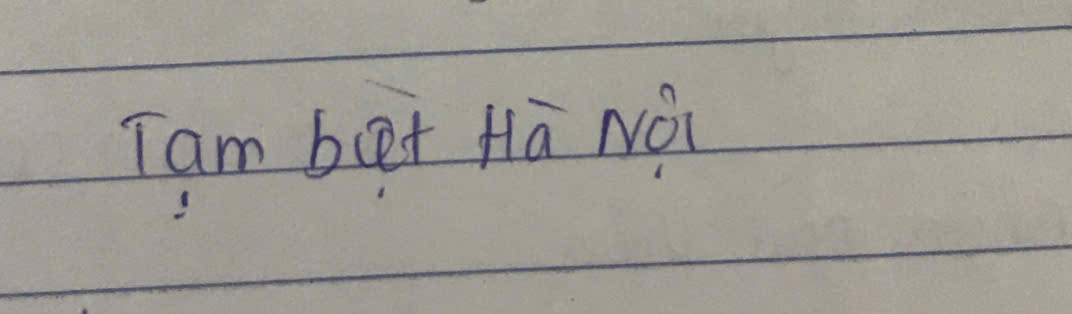 Tạm biệt Hà Nội